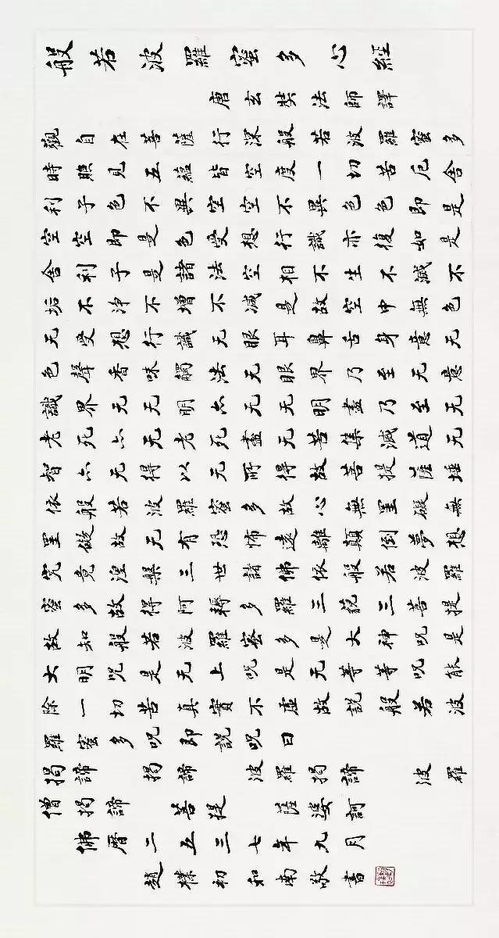 般若波羅蜜多心經
唐玄奘法師譯
觀自在菩薩行深般若波羅蜜多
時照見五蘊皆空度一切苦厄舍
利子色不異空空不異色色即是
空空即是色受想行識亦復如是
舍利子是諸法空相不生不滅不
垢不淨不增不减是故空中無色
无受想行識无眼耳鼻舌身意无
色聲香味觸法无眼界乃至无意
識界无无明亦无无明盡乃至无
老死亦无老死盡无苦集滅道无
智亦无得以无所得故菩提薩埵
依般若波羅蜜多故心無罣礙無
罣礙故无有恐怖遠離顛倒夢想
究竟涅槃三世諸佛依般若波羅
蜜多故得阿耨多羅三藐三菩提
故知般若波羅蜜多是大神呪是
大明呪是无上呪是无等等呪能
除一切苦真實不虛故說般若波
羅蜜多呪即說呪曰
揭諦 揭諦 波羅揭諦 波羅
僧揭諦 菩提 薩婆訶
佛曆二五三七年九月
趙樸初和南敬書